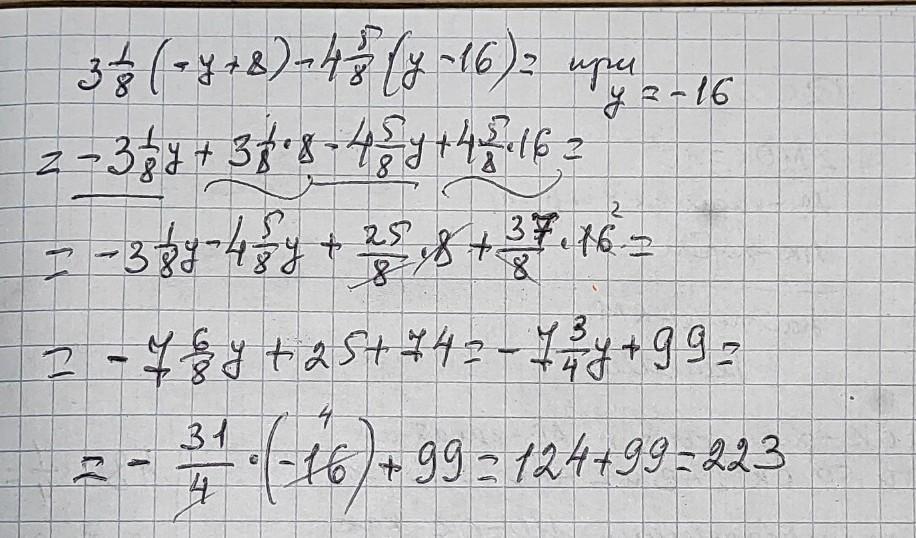 3 1/8 (-y+8) - 4 5/8 (y-16) = при y = -16
= -3 1/8 y + 3 1/8 · 8 - 4 5/8 y + 4 5/8 · 16 =
= -3 1/8 y - 4 5/8 y + 25/8 · 8 + 37/8 · 16 2 =
= -7 6/8 y + 25 + 74 = -7 3/4 y + 99 =
= - 31/4 · (-16 4) + 99 = 124 + 99 = 223